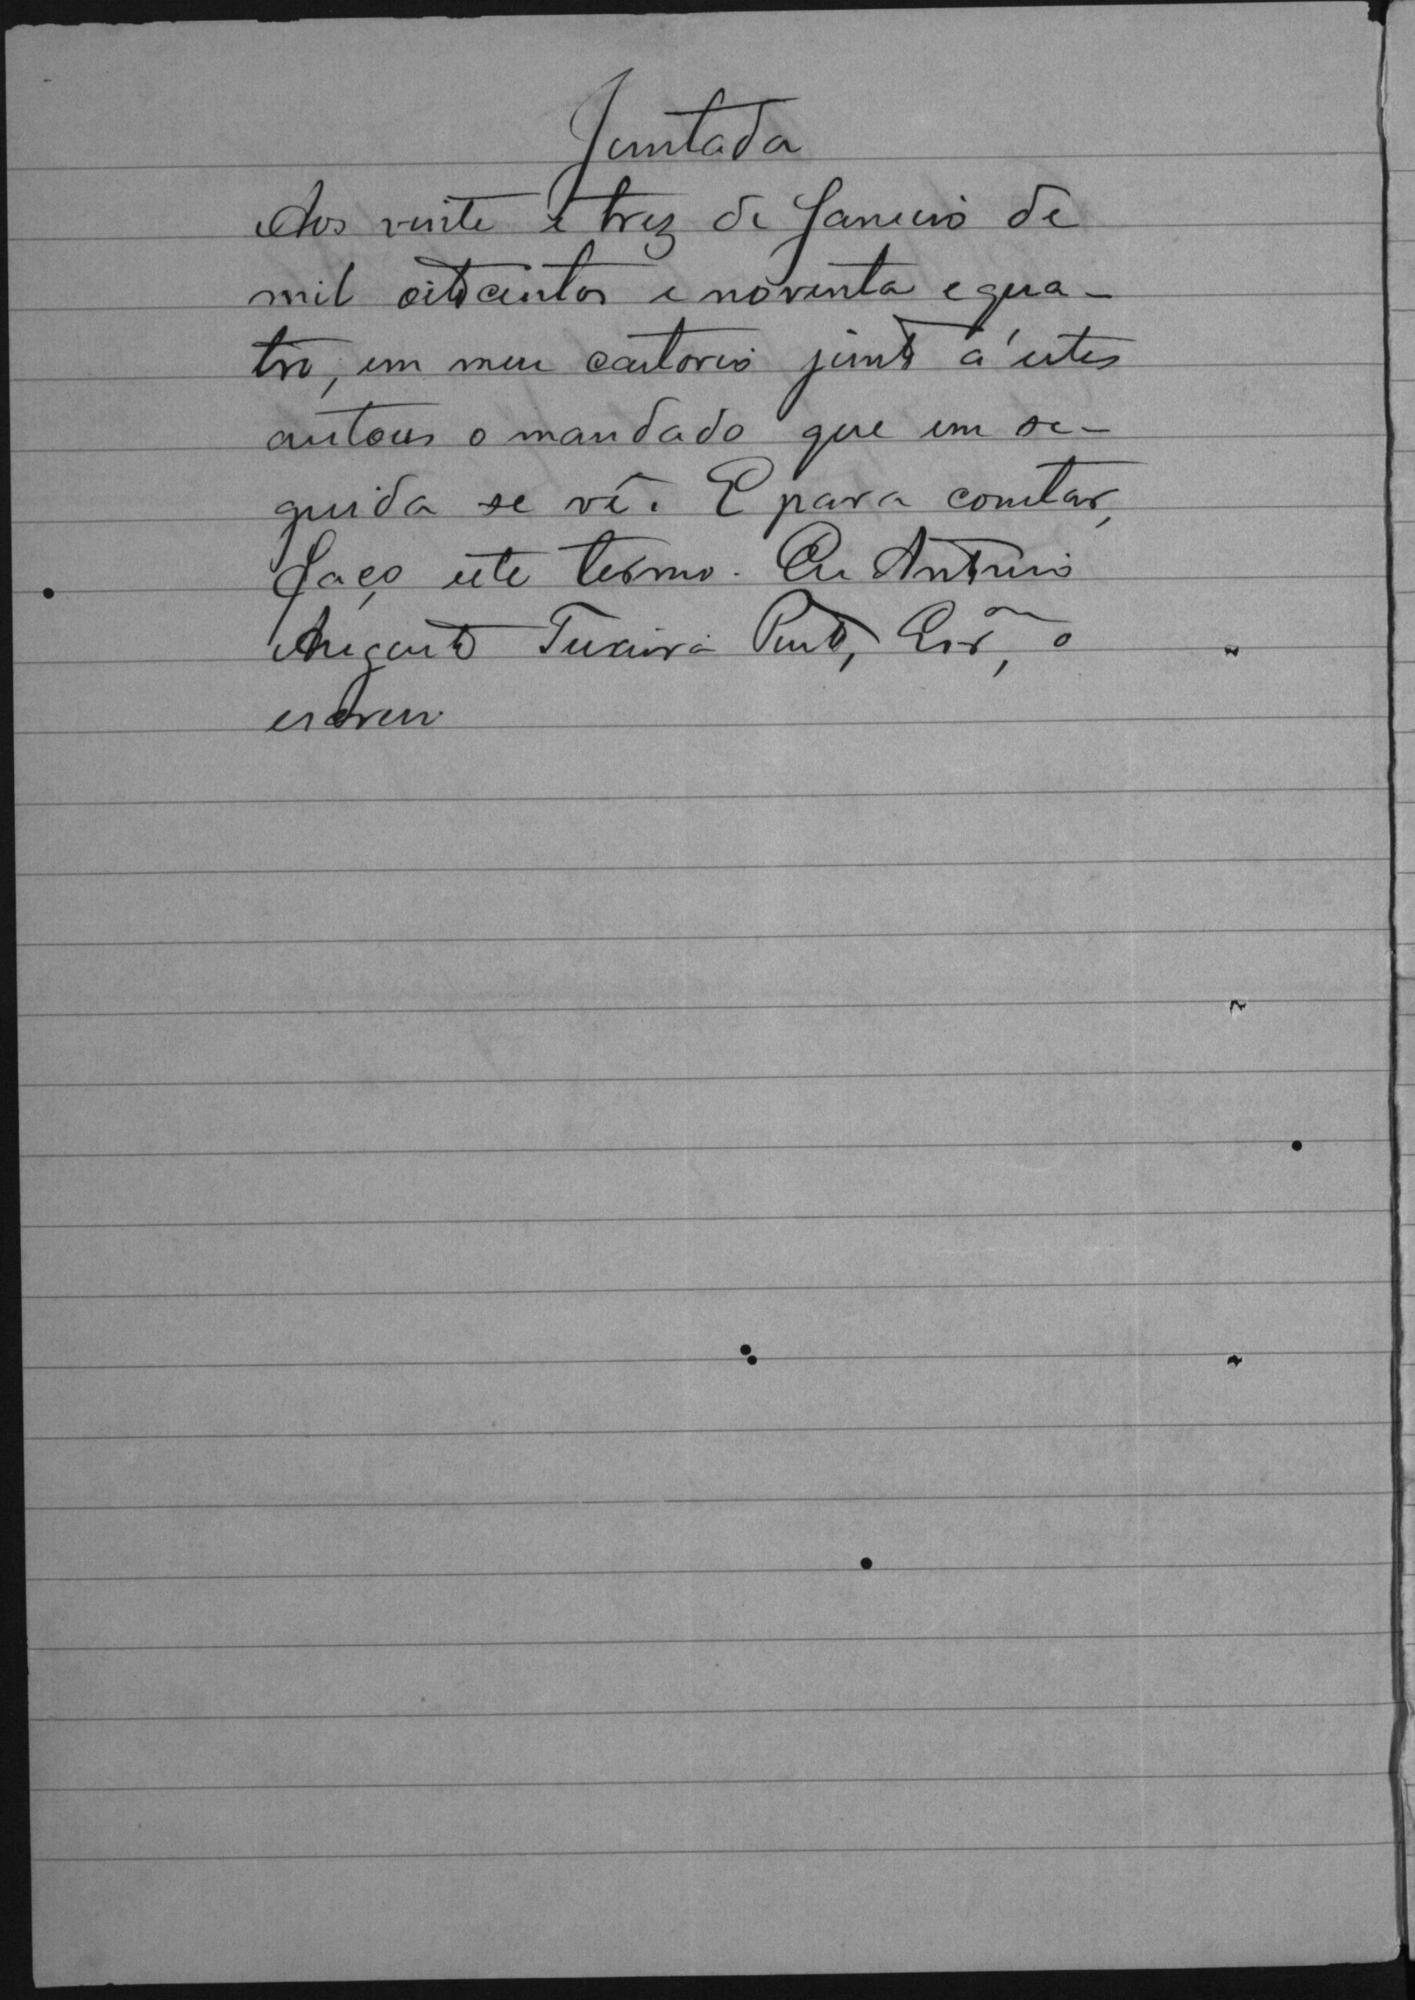 Juntada
Aos vinte e trez de Janeiro de
mil oitocentos e noventa e qua-
tro, em meu cartorio junto á estes
autos o mandado que em se-
guida se vê. E para constar,
faço este termo. Eu Antonio
Augusto Teixeira Pinto, Esr.ão, o
escrevi